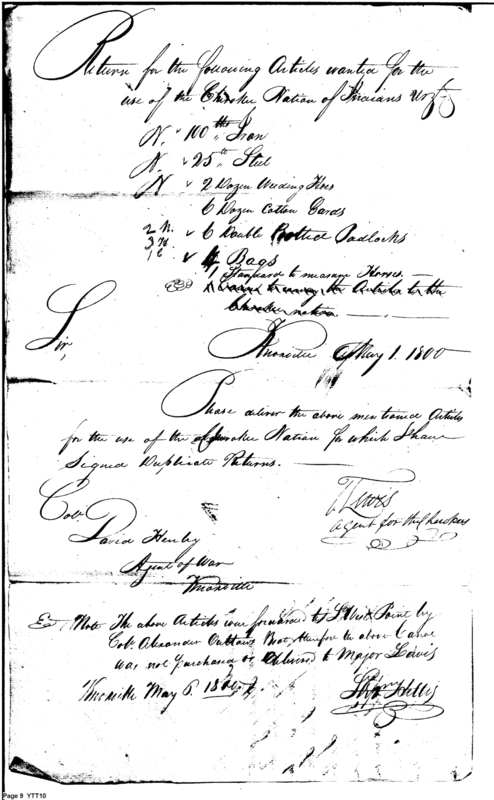 Return for the following Articles wanted for the
use of the Cherokee Nation of Indians Vizt
N. 100 lbs Iron
N. 25 lb Steel
N 2 Dozen Weeding Hoes
6 Dozen Cotton Cards
2 N. 6 Double Bolted Padlocks
3
1 Bags
1 Standard to measure Horses. —
1 Canoe to the Articles to the
Cherokee nation —
Sir, Knoxville May 1. 1800
Please deliver the above mentioned Articles
for the use of the Cherokee Nation for which I have
Signed Duplicate Returns. —
Lewis
Agent for the Cherokees
Colo.
David Henley
Agent of War
Knoxville
Note The above Articles were forwarded to S. West Point by
Colo. Alexander Outlaws Boat, therefore the above Canoe
was not purchased or delivered to Major Lewis
Knoxville May 6. 1800
Hillis
Page 9 YTT10